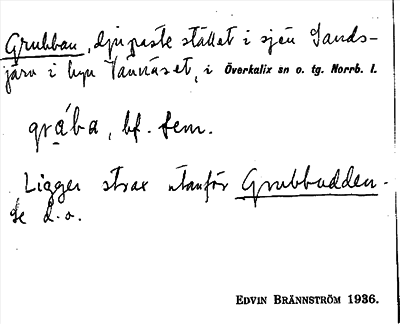 Grubban, djupaste stället i sjön Sands-
järv i byn Tännäset, i Överkalix sn o. tg. Norrb. l.
grá̱ba, bf. fem.
Ligger strax utanför Grubbudden.
Se d.o.
EDVIN BRÄNNSTRÖM 1936.